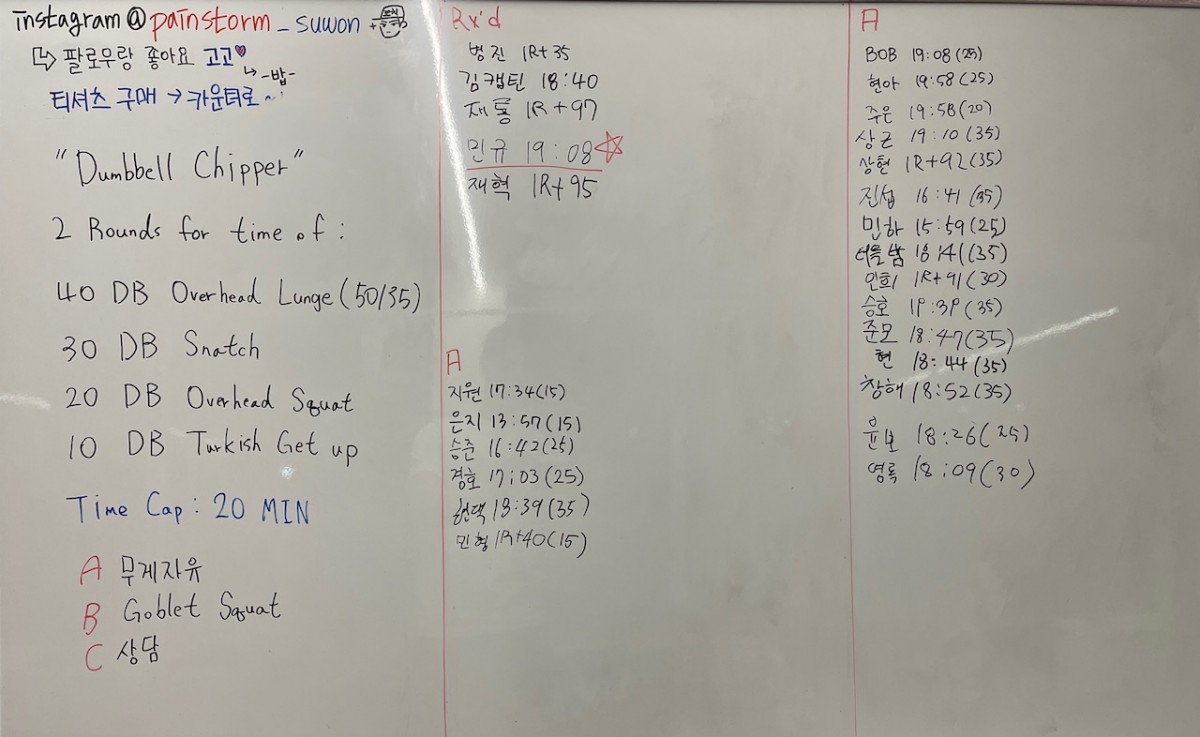 instagram@painstorm_suwon
팔로우랑 좋아요 고고♥
-밥-
티셔츠 구매 → 카운터로~
"Dumbbell Chipper"
2 Rounds for time of :
40 DB Overhead Lunge (50/35)
30 DB Snatch
20 DB Overhead Squat
10 DB Turkish Get up
Time Cap : 20 MIN
A 무게자유
B Goblet Squat
C 상담
Rx'd
병진 1R+35
김캡틴 18:40
재롱 1R+97
민규 19:08
재혁 1R+95
A
지원 17:34(15)
은지 13:57(15)
승준 16:42(25)
경호 17:03(25)
현택 18:39(35)
민형 1R+40(15)
A
BOB 19:08(25)
현아 19:58(25)
주은 19:58(20)
상근 19:10(35)
상현 1R+92(35)
진섭 16:41(35)
민하 15:59(25)
18:41(35)
인희 1R+91(30)
승호 19:39(35)
준모 18:47(35)
현 18:44(35)
창해 18:52(35)
윤보 18:26(25)
영록 18:09(30)